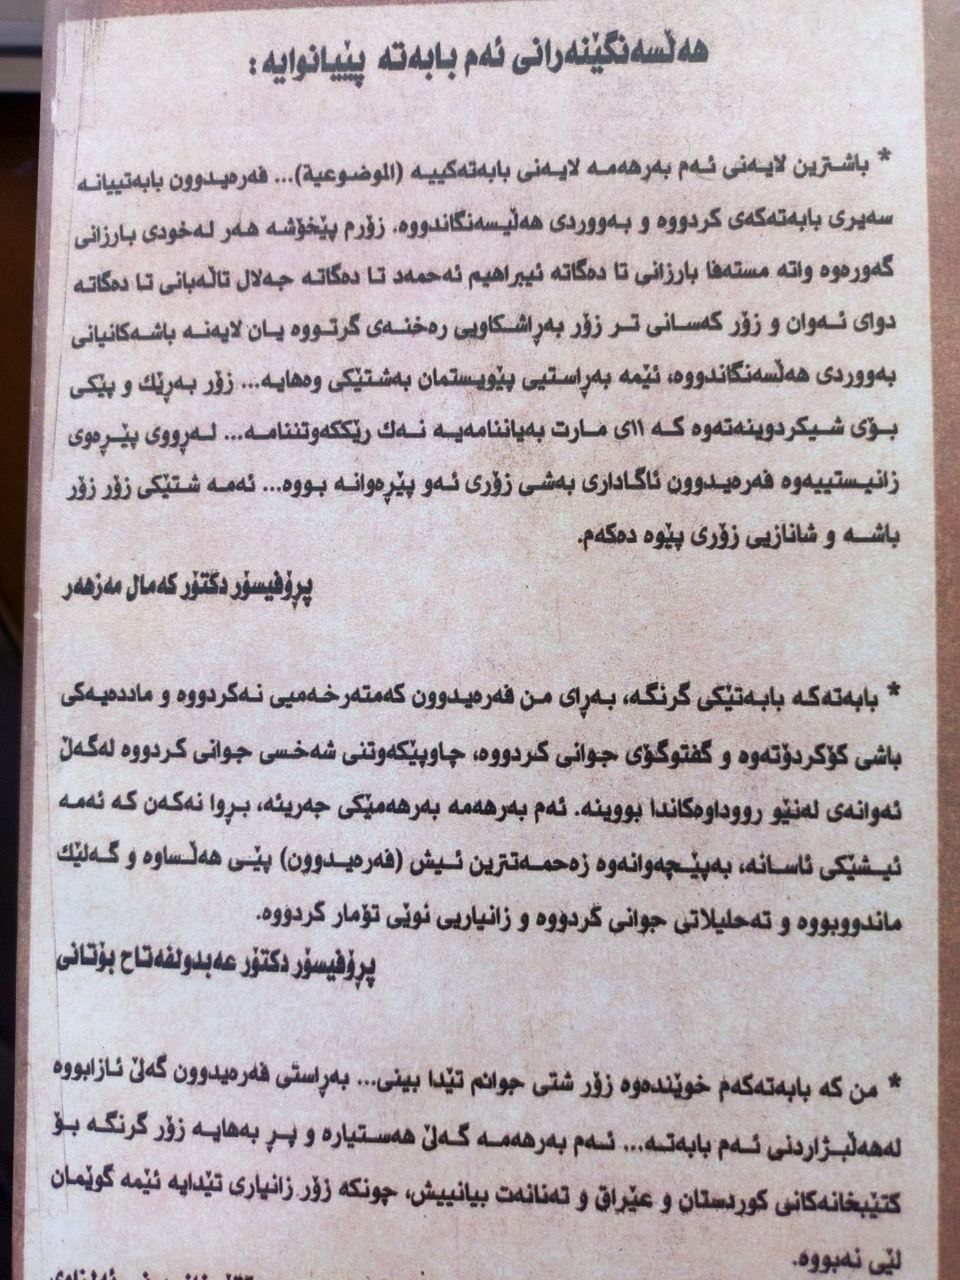 هەڵسەنگێنەرانی ئەم بابەتە پێیانوایە :
* باشترین لایەنی ئەم بەرهەمە لایەنی بابەتەکییە (الموضوعية)... فەرەیدوون بابەتییانە
سەیری بابەتەکەی کردووە و بەووردی هەڵیسەنگاندووە. زۆرم پێخۆشە هەر لەخودی بارزانی
گەورەوە واتە مستەفا بارزانی تا دەگاتە ئیبراهیم ئەحمەد تا دەگاتە جەلال تاڵەبانی تا دەگاتە
دوای ئەوان و زۆر کەسانی تر زۆر بەڕاشکاویی رەخنەی گرتووە یان لایەنە باشەکانیانی
بەووردی هەڵسەنگاندووە، ئێمە بەڕاستیی پێویستمان بەشتێکی وەهایە... زۆر بەڕێك و پێکی
بۆی شیکردوینەتەوە کە ١١ی مارت بەیاننامەیە نەك رێککەوتننامە... لەڕووی پێڕەوی
زانیستییەوە فەرەیدوون ئاگاداری بەشی زۆری ئەو پێڕەوانە بووە... ئەمە شتێکی زۆر زۆر
باشە و شانازیی زۆری پێوە دەکەم.
پڕۆفیسۆر دکتۆر کەمال مەزهەر
* بابەتەکە بابەتێکی گرنگە، بەڕای من فەرەیدوون کەمتەرخەمیی نەکردووە و ماددەیەکی
باشی کۆکردۆتەوە و گفتوگۆی جوانی کردووە، چاوپێکەوتنی شەخسی جوانی کردووە لەگەڵ
ئەوانەی لەنێو رووداوەکاندا بووینە. ئەم بەرهەمە بەرهەمێکی جەریئە، بڕوا نەکەن کە ئەمە
ئیشێکی ئاسانە، بەپێچەوانەوە زەحمەتترین ئیش (فەرەیدوون) پێی هەڵساوە و گەلێك
ماندووبووە و تەحلیلاتی جوانی کردووە و زانیاریی نوێی تۆمار کردووە.
پڕۆفیسۆر دکتۆر عەبدولفەتاح بۆتانی
* من کە بابەتەکەم خوێندەوە زۆر شتی جوانم تێدا بینی... بەڕاستی فەرەیدوون گەلێ ئازابووە
لەهەڵبژاردنی ئەم بابەتە... ئەم بەرهەمە گەلێ هەستیارە و پڕ بەهایە زۆر گرنگە بۆ
کتێبخانەکانی کوردستان و عێراق و تەنانەت بیانییش، چونکە زۆر زانیاری تێدایە ئێمە گوێمان
لێی نەبووە.